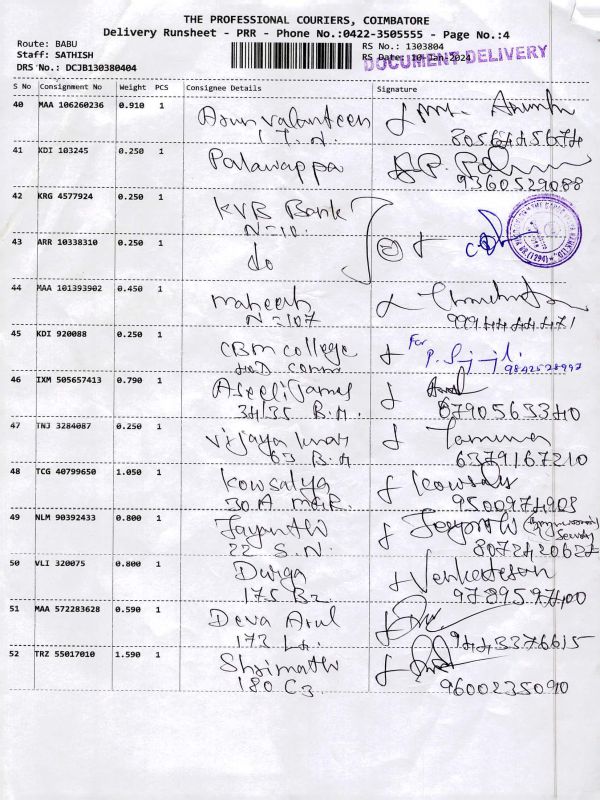 THE PROFESSIONAL COURIERS, COIMBATORE
Delivery Runsheet - PRR - Phone No.:0422-3505555 - Page No.:4
Route: BABU
Staff: SATHISH
DRS No.: DCJB130380404
RS No.: 1303804
RS Date: 10-Jan-2024
DOCUMENT DELIVERY
S No Consignment No Weight PCS Consignee Details Signature
40 MAA 106260236 0.910 1
8056445674
41 KDI 103245 0.250 1 Palawappa
9360529088
42 KRG 4577924 0.250 1 KVB Bank
N=10
43 ARR 10338310 0.250 1 do
44 MAA 101393902 0.450 1
N=107
45 KDI 920088 0.250 1 CBM college For
9842528997
46 IXM 505657413 0.790 1
34/35 B.A.
8790563340
47 TNJ 3284087 0.250 1 Vijaya kumar
63 B.A
6379167210
48 TCG 40799650 1.050 1 Kowsalya Kowsalya
30A MGR. 9500974903
49 NLM 90392433 0.800 1 Jayanthi Jayanthi
22 S.N. 8072420627
50 VLI 320075 0.800 1 Durga Venkatesan
175 B2 9789597400
51 MAA 572283628 0.590 1 Deva Arul
173 9443376615
52 TRZ 55017010 1.590 1 Shrimathi
180 C3 9600235090